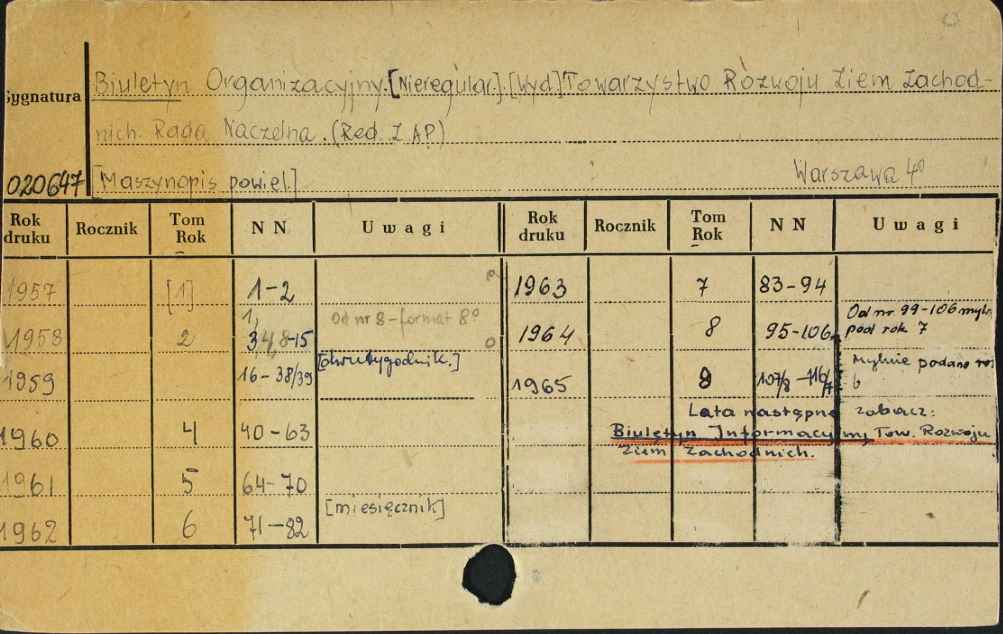 Sygnatura
Biuletyn Organizacyjny.[Nieregular.].[Wyd.]Towarzystwo Rozwoju Ziem Zachod-
nich. Rada Naczelna. (Red. Z. AP.)
020647 [Maszynopis powiel.] Warszawa 4º
Rok druku Rocznik Tom Rok N N Uwagi Rok druku Rocznik Tom Rok N N Uwagi
1957 [1] 1-2 1963 7 83-94
1958 2 1, 3,4,8-15 Od nr 8-format 8º 1964 8 95-106 Od nr 99-106 myln. pod rok 7
1959 16-38/39 [dwutygodnik.] 1965 9 107/8-116/7 Mylnie podano ro. 6
Lata następne zobacz:
1960 4 40-63 Biuletyn Informacyjny Tow. Rozwoju
Ziem Zachodnich.
1961 5 64-70
1962 6 71-82 [miesięcznik]